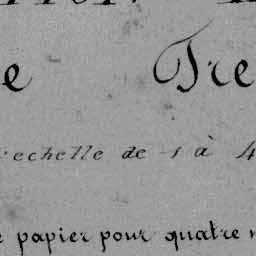 e Tre
echelle de 1 à 4
papier pour quatre